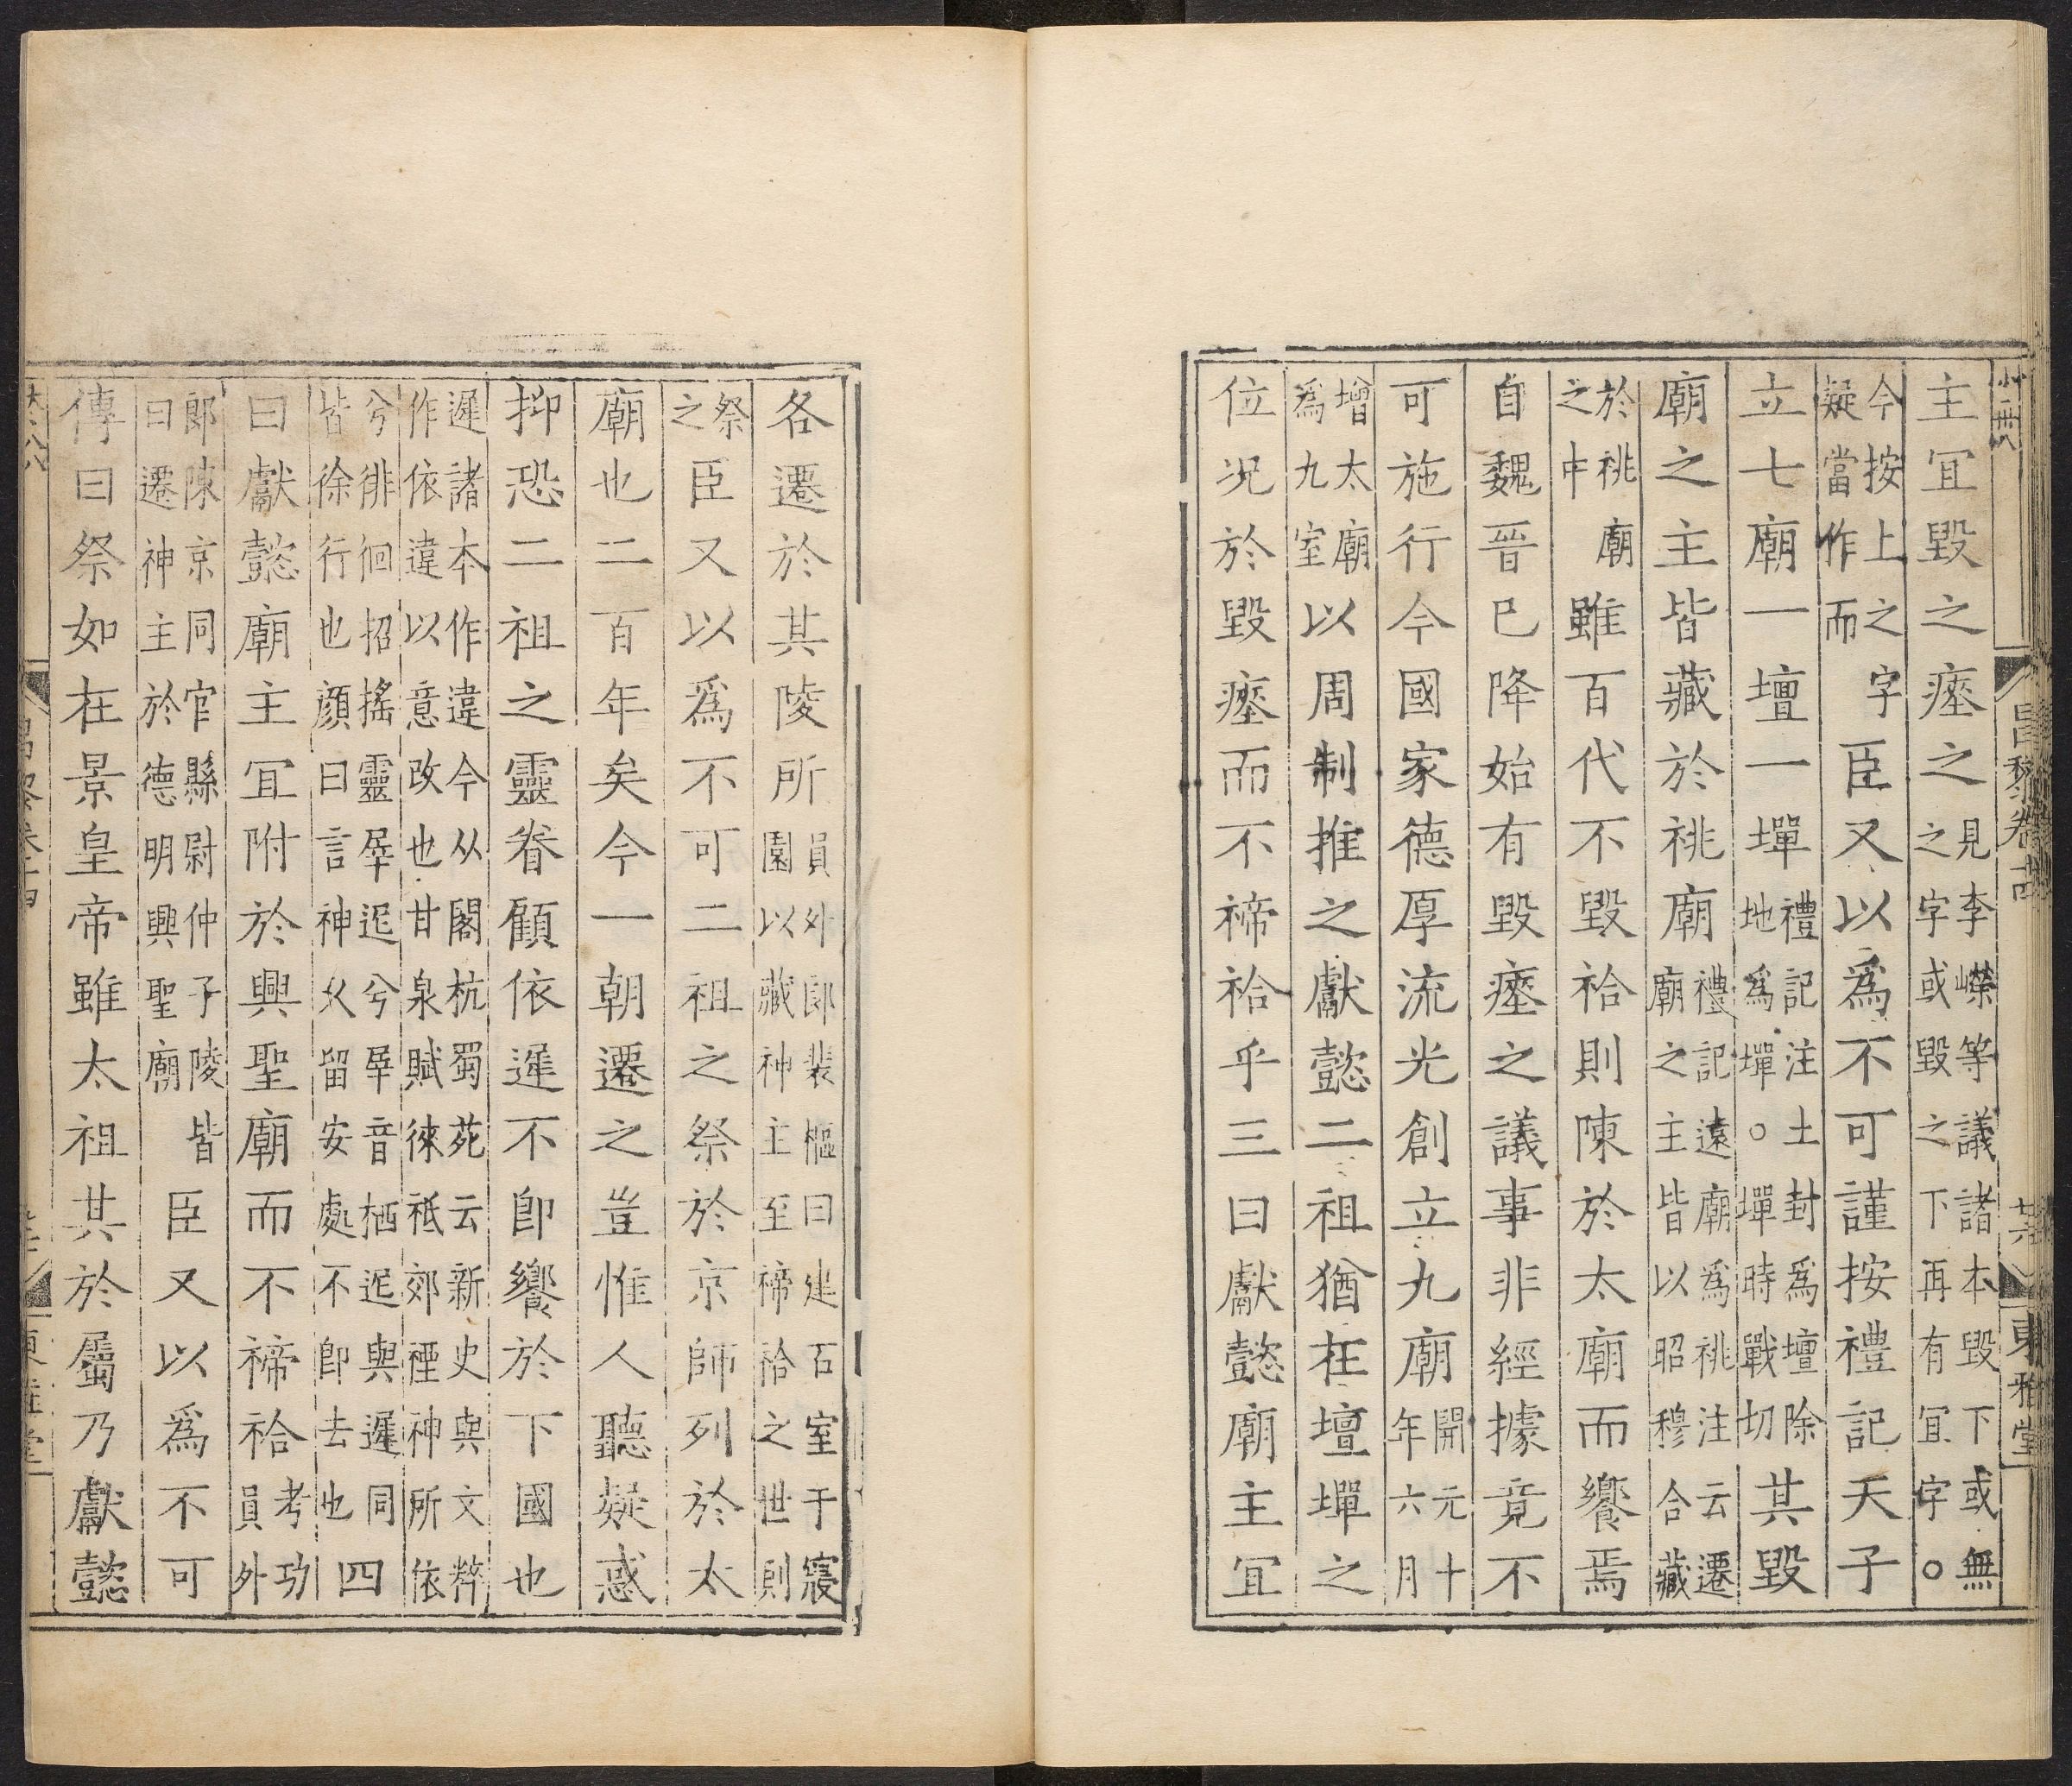 主宜毀之瘞之見李嶸等議諸本毀下或無
之字或毀之下再有宜字○
今按上之字
疑當作而臣又以爲不可謹按禮記天子
立七廟一壇一墠禮記注土封爲壇除
地爲墠○墠時戰切其毀
廟之主皆藏於祧廟禮記遠廟爲祧注云遷
廟之主皆以昭穆合藏
於祧廟
之中雖百代不毀祫則陳於太廟而饗焉
自魏晉已降始有毀瘞之議事非經據竟不
可施行今國家德厚流光創立九廟開元十
年六月
增太廟
爲九室以周制推之獻懿二祖猶在壇墠之
位況於毀瘞而不禘祫乎三曰獻懿廟主宜
昌黎卷十四
廿六
東雅堂
各遷於其陵所員外郎裴樞曰建石室于寢
園以藏神主至禘祫之世則
祭
之臣又以爲不可二祖之祭於京師列於太
廟也二百年矣今一朝遷之豈惟人聽疑惑
抑恐二祖之靈眷顧依遲不卽饗於下國也
遲諸本作違今从閣杭蜀苑云新史與文粹
作依違以意改也甘泉賦徠祗郊禋神所依
兮徘徊招搖靈屖迟兮屖音栖迟與遲同
皆徐行也顏曰言神久留安處不卽去也四
曰獻懿廟主宜附於興聖廟而不禘祫考功
員外
郎陳京同官縣尉仲子陵皆
曰遷神主於德明興聖廟臣又以爲不可
傳曰祭如在景皇帝雖太祖其於屬乃獻懿